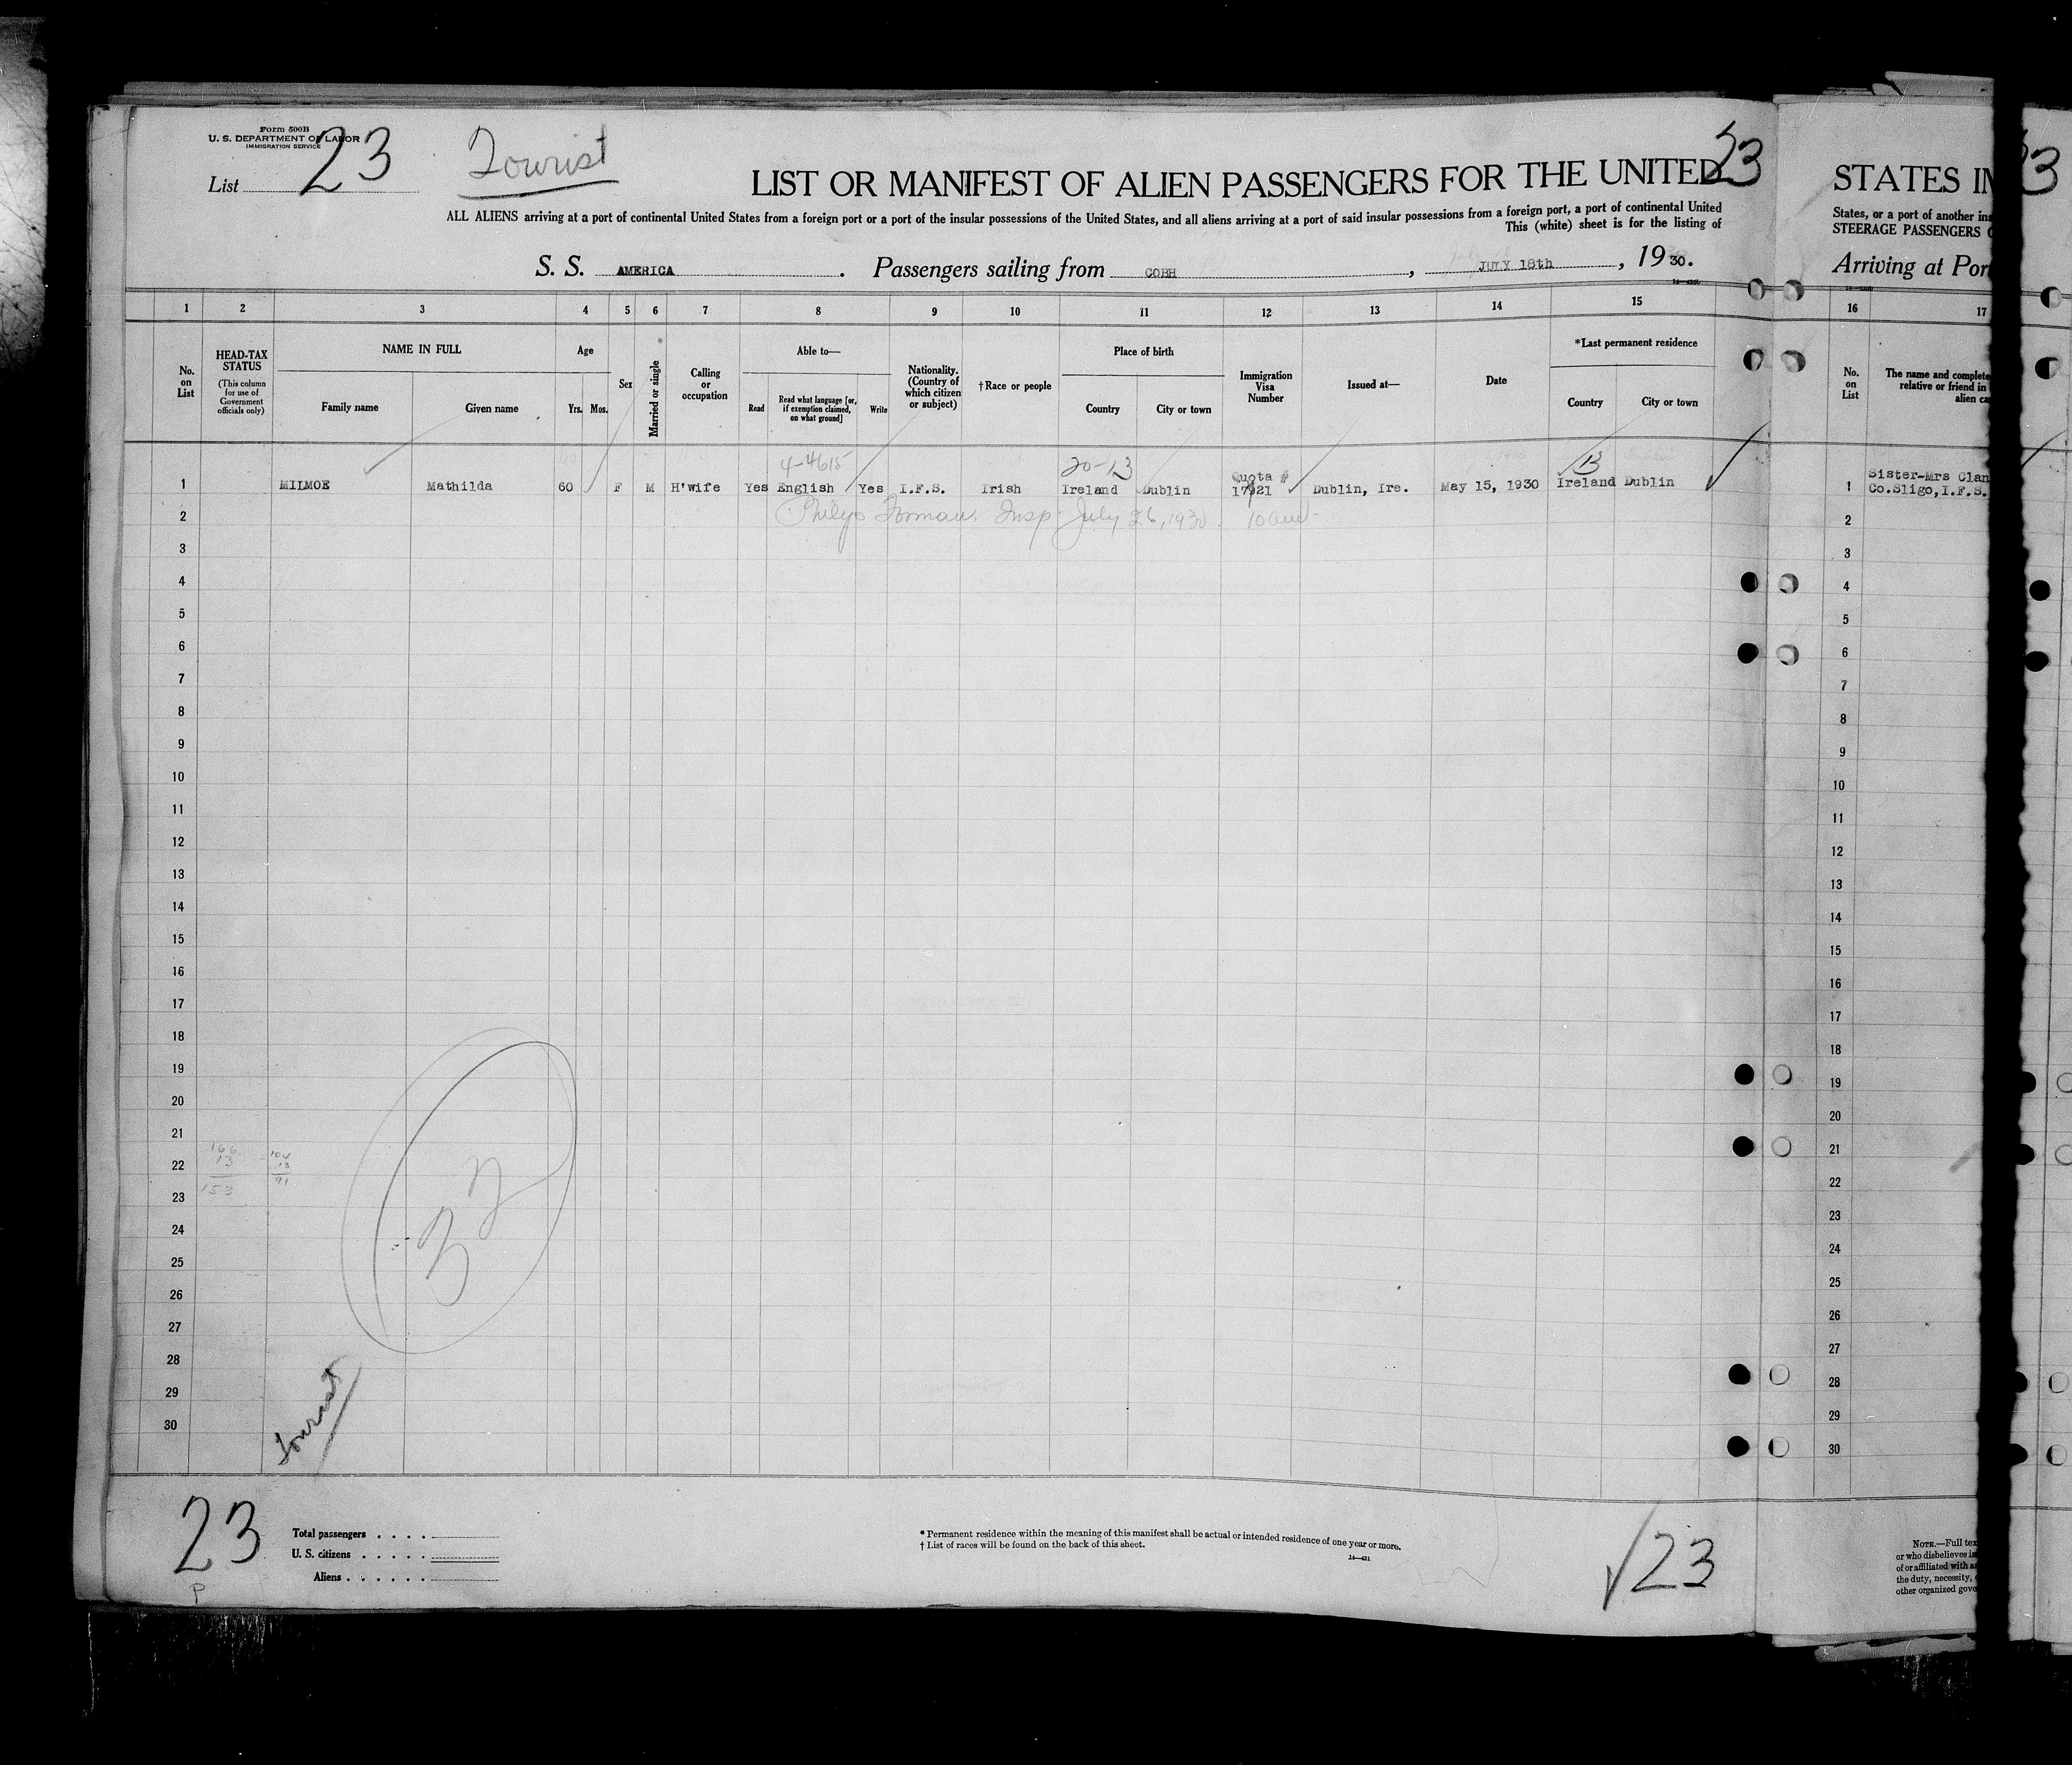 Form 500B
U. S. DEPARTMENT OF LABOR
IMMIGRATION SERVICE
List 23
Tourist
23
LIST OR MANIFEST OF ALIEN PASSENGERS FOR THE UNITED
ALL ALIENS arriving at a port of continental United States from a foreign port or a port of the insular possessions of the United States, and all aliens arriving at a port of said insular possessions from a foreign port, a port of continental United
This (white) sheet is for the listing of
S. S. AMERICA. Passengers sailing from COBH, JULY 18th, 1930.
1 2 3 4 5 6 7 8 9 10 11 12 13 14 15
No. on List
HEAD-TAX STATUS
(This column for use of Government officials only)
NAME IN FULL
Family name Given name
Age
Yrs. Mos.
Sex
Married or single
Calling or occupation
Able to—
Read
Read what language [or, if exemption claimed, on what ground]
Write
Nationality. (Country of which citizen or subject)
†Race or people
Place of birth
Country City or town
Immigration Visa Number
Issued at—
Date
*Last permanent residence
Country City or town
4-4615 20-13 13
1 MILMOE Mathilda 60 F M H'wife Yes English Yes I.F.S. Irish Ireland Dublin Quota # 17921 Dublin, Ire. May 15, 1930 Ireland Dublin
2 Forman Insp July 26, 1930 10 am
3
4
5
6
7
8
9
10
11
12
13
14
15
16
17
18
19
20
21
22
23
24
25
26
27
28
29
30
166
13
153
104
13
91
Tourist
23
P
Total passengers
U. S. citizens
Aliens
* Permanent residence within the meaning of this manifest shall be actual or intended residence of one year or more.
† List of races will be found on the back of this sheet.
14—431
23
STATES IN
States, or a port of another ins
STEERAGE PASSENGERS
Arriving at Por
16 17
No. on List
The name and complete
relative or friend in
alien ca
1 Sister-Mrs Clan
Co.Sligo, I.F.S.
2
3
4
5
6
7
8
9
10
11
12
13
14
15
16
17
18
19
20
21
22
23
24
25
26
27
28
29
30
NOTE.—Full tex
or who disbelieves in
of or affiliated with a
the duty, necessity,
other organized gove
3